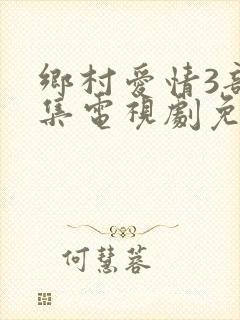 鄉村愛情3
集電視劇免
何慧蓉